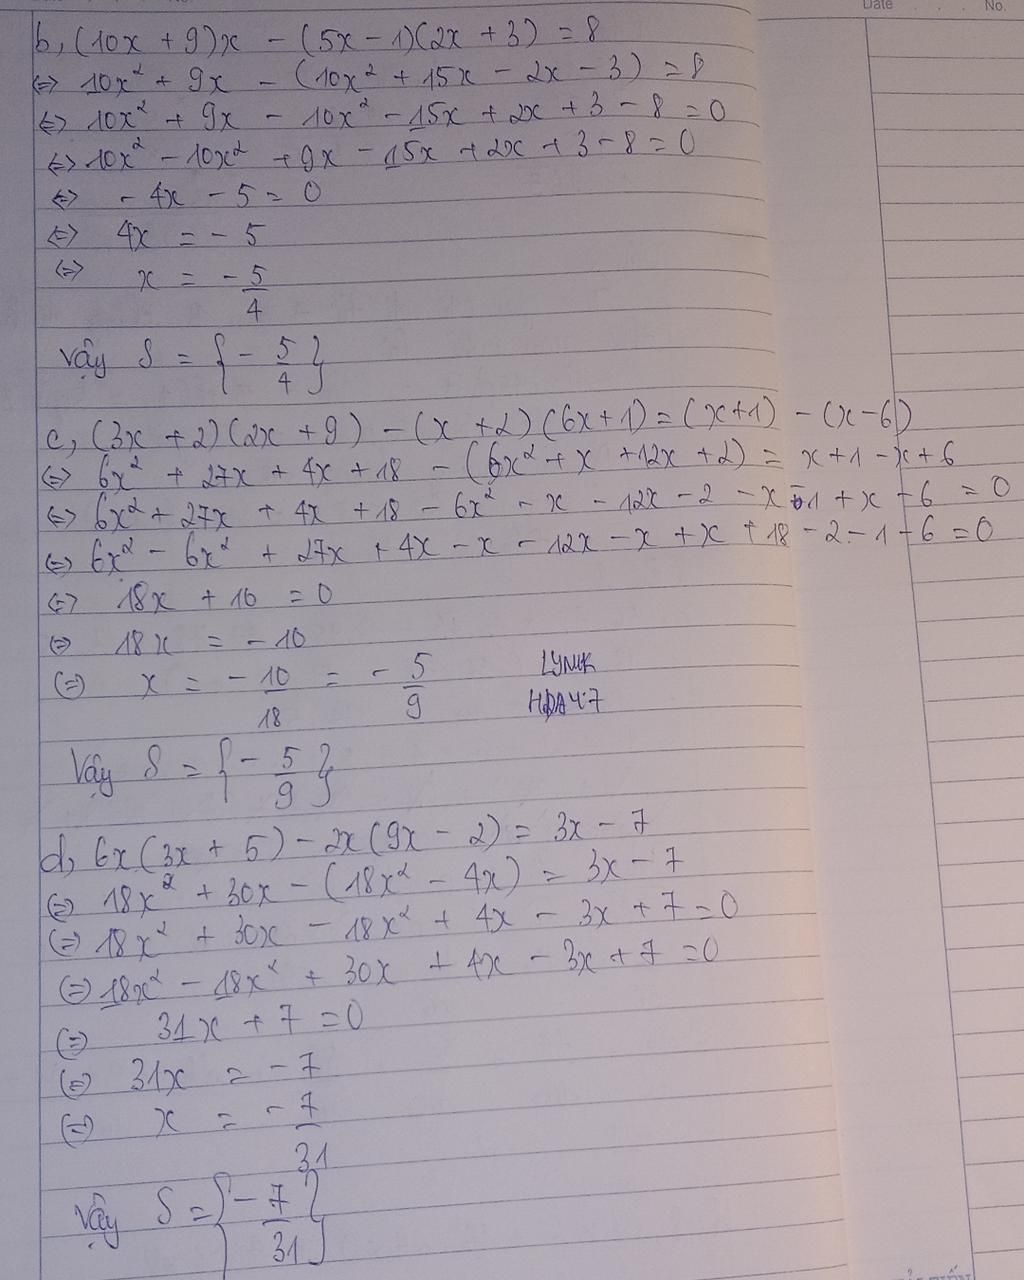 Date No.
b, (10x + 9)x - (5x - 1)(2x + 3) = 8
⇔ 10x² + 9x - (10x² + 15x - 2x - 3) = 8
⇔ 10x² + 9x - 10x² - 15x + 2x + 3 - 8 = 0
⇔ 10x² - 10x² + 9x - 15x + 2x + 3 - 8 = 0
⇔ - 4x - 5 = 0
⇔ 4x = - 5
⇔ x = - 5/4
Vậy S = {- 5/4}
c, (3x + 2)(2x + 9) - (x + 2)(6x + 1) = (x + 1) - (x - 6)
⇔ 6x² + 27x + 4x + 18 - (6x² + x + 12x + 2) = x + 1 - x + 6
⇔ 6x² + 27x + 4x + 18 - 6x² - x - 12x - 2 - x - 1 + x - 6 = 0
⇔ 6x² - 6x² + 27x + 4x - x - 12x - x + x + 18 - 2 - 1 - 6 = 0
⇔ 18x + 10 = 0
⇔ 18x = - 10
⇔ x = - 10/18 = - 5/9
Vậy S = {- 5/9}
d, 6x(3x + 5) - 2x(9x - 2) = 3x - 7
⇔ 18x² + 30x - (18x² - 4x) = 3x - 7
⇔ 18x² + 30x - 18x² + 4x - 3x + 7 = 0
⇔ 18x² - 18x² + 30x + 4x - 3x + 7 = 0
⇔ 31x + 7 = 0
⇔ 31x = - 7
⇔ x = - 7/31
Vậy S = {- 7/31}